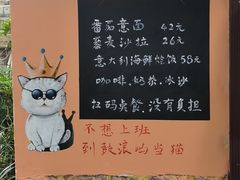 番茄意面 42元
藜麦沙拉 26元
意大利海鲜烩饭 58元
咖啡.奶茶.冰沙
扫码卖餐.没有负担
不想上班
到敦浪屿当猫